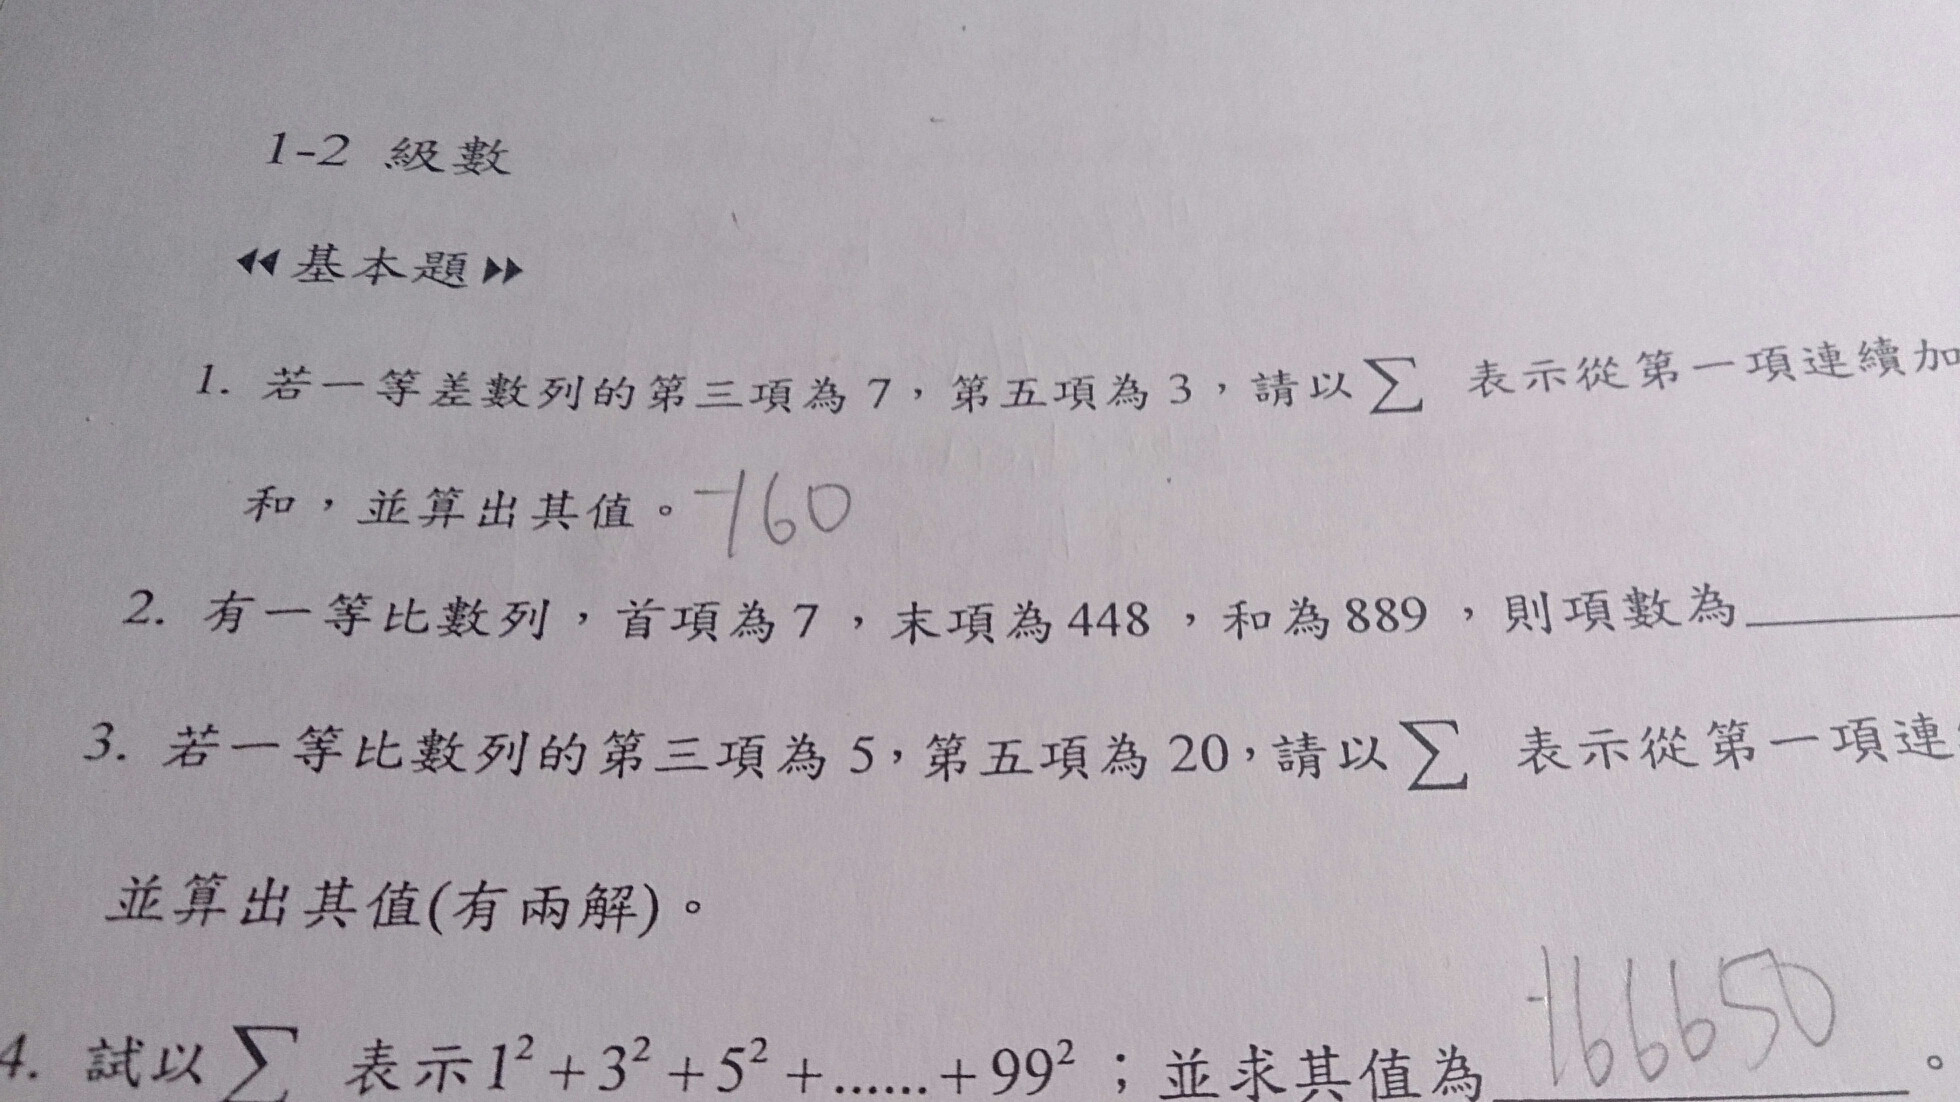 1-2 級數
◂◂基本題▸▸
1. 若一等差數列的第三項為 7，第五項為 3，請以∑ 表示從第一項連續加
和，並算出其值。-160
2. 有一等比數列，首項為 7，末項為 448，和為 889，則項數為______
3. 若一等比數列的第三項為 5，第五項為 20，請以∑ 表示從第一項連
並算出其值(有兩解)。
4. 試以∑ 表示1²+3²+5²+......+99²；並求其值為 166650 。